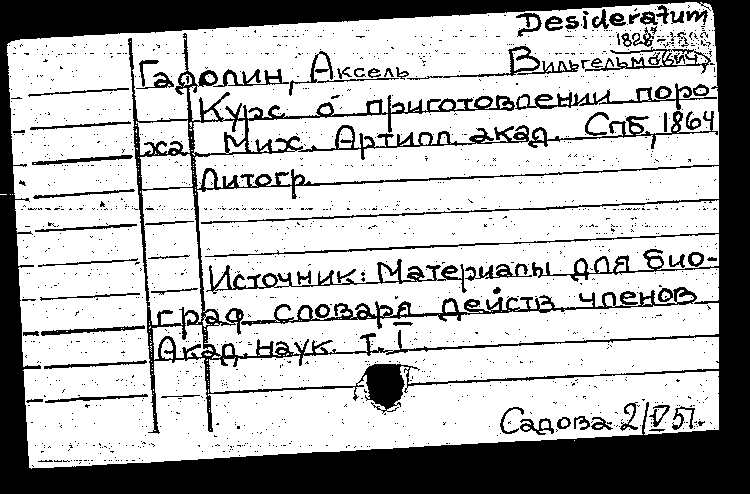 Desideratum
1828-
Гадолин, Аксель Вильгельмович,
Курс о приготовлении поро-
ха Мих. Артилл. акад. Спб., 1864
Литогр.
Источник: Материалы для био-
граф. словаря действ. членов
Акад. наук. т. I
Садова 2/V 51.